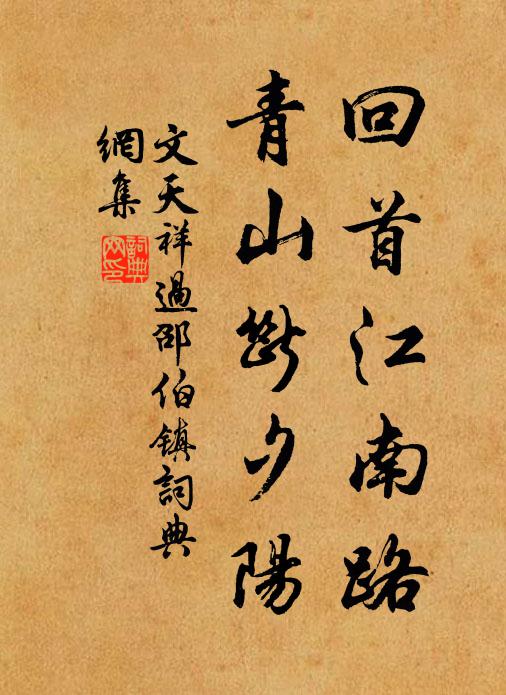 回首江南路
青山斷夕陽
文天祥過邵伯鎮詞典
網集
詞典
網印